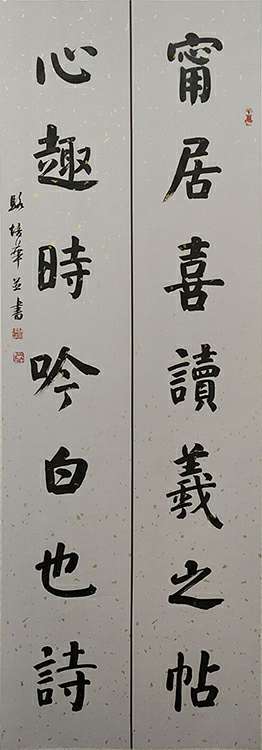 甯居喜讀羲之帖
心趣時吟白也詩
培華並書